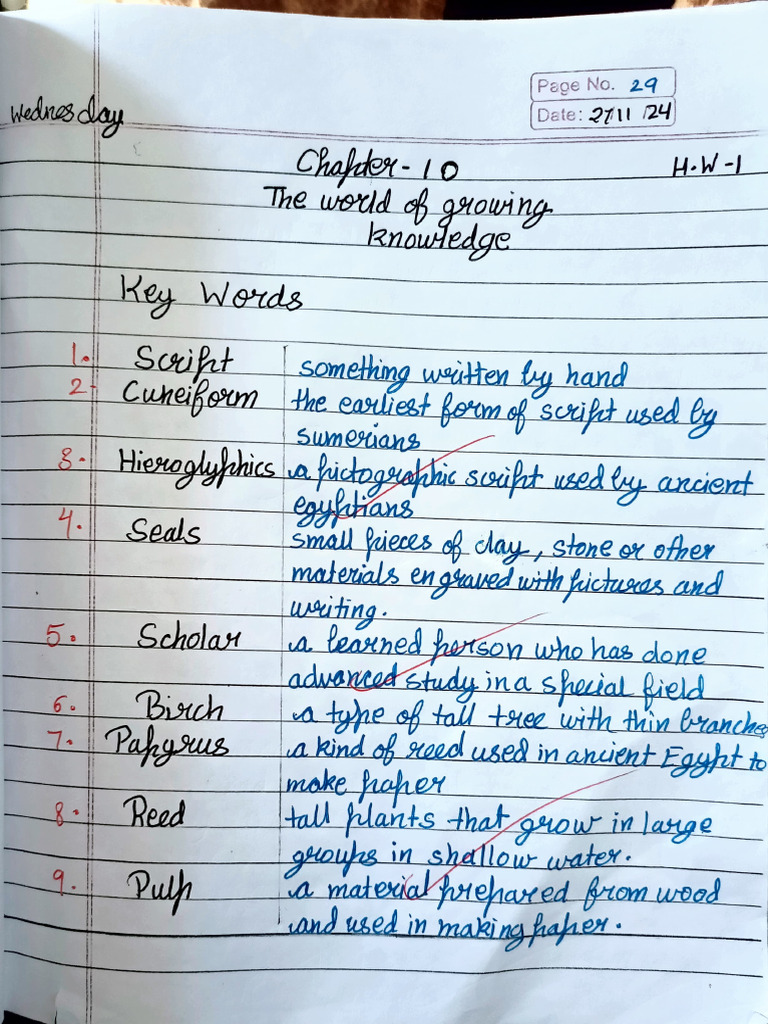 Page No. 29
Wednesday
Date: 27/11/24
Chapter-10
H.W-1
The world of growing
knowledge
Key Words
1. Script something written by hand
2. Cuneiform the earliest form of script used by
sumerians
3. Hieroglyphics a pictographic script used by ancient
egyptians
4. Seals small pieces of clay, stone or other
materials engraved with pictures and
writing.
5. Scholar a learned person who has done
advanced study in a special field
6. Birch a type of tall tree with thin branches
7. Papyrus a kind of reed used in ancient Egypt to
make paper
8. Reed tall plants that grow in large
groups in shallow water.
9. Pulp a material prepared from wood
and used in making paper.